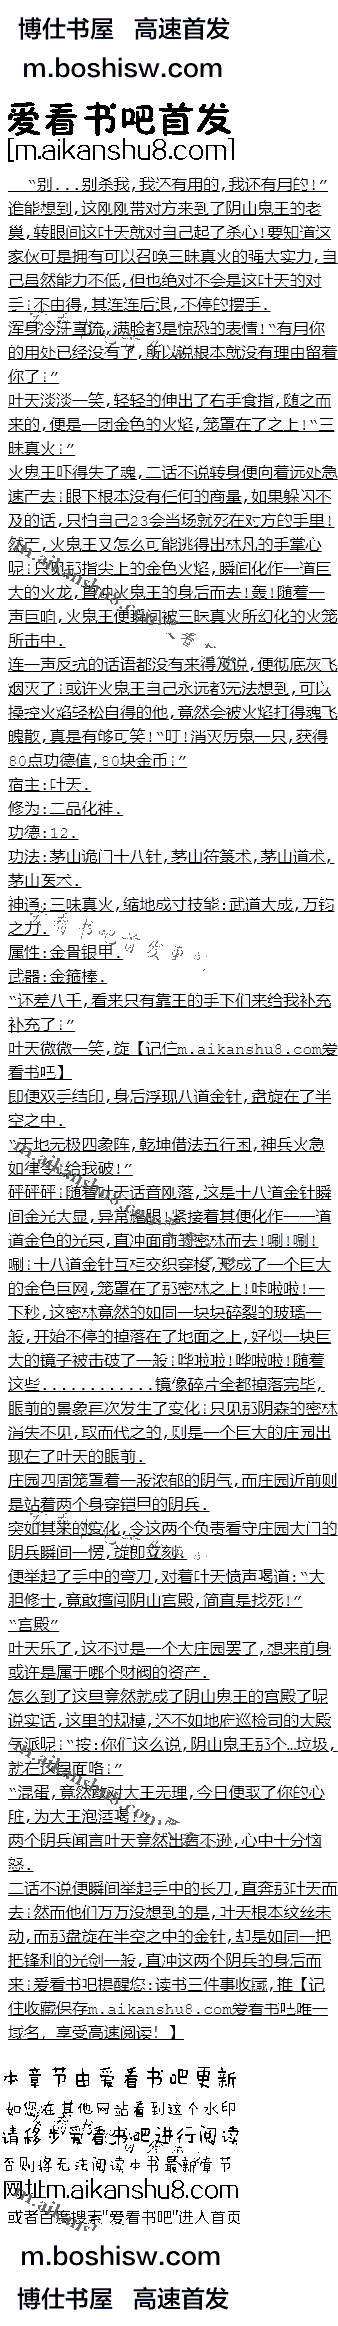 博仕书屋 高速首发
m.boshisw.com
爱看书吧首发
[m.aikanshu8.com]
“别...别杀我,我还有用的,我还有用的!”
谁能想到,这刚刚带对方来到了阴山鬼王的老
巢,转眼间这叶天就对自己起了杀心!要知道这
家伙可是拥有可以召唤三昧真火的强大实力,自
己虽然能力不低,但也绝对不会是这叶天的对
手!不由得,其连连后退,不停的摆手.
浑身冷汗直流,满脸都是惊恐的表情!“有用你
的用处已经没有了,所以说根本就没有理由留着
你了!”
叶天淡淡一笑,轻轻的伸出了右手食指,随之而
来的,便是一团金色的火焰,笼罩在了之上!“三
昧真火!”
火鬼王吓得失了魂,二话不说转身便向着远处急
速而去!眼下根本没有任何的商量,如果躲闪不
及的话,只怕自己23会当场就死在对方的手里!
然而,火鬼王又怎么可能逃得出林凡的手掌心
呢!只见那指尖上的金色火焰,瞬间化作一道巨
大的火龙,直奔火鬼王的身后而去!轰!随着一
声巨响,火鬼王便瞬间被三昧真火所幻化的火笼
所击中.
连一声反抗的话语都没有来得及说,便彻底灰飞
烟灭了!或许火鬼王自己永远都无法想到,可以
操控火焰轻松自得的他,竟然会被火焰打得魂飞
魄散,真是有够可笑!“叮!消灭厉鬼一只,获得
80点功德值,80块金币!”
宿主:叶天.
修为:二品化神.
功德:12.
功法:茅山诡门十八针,茅山符箓术,茅山道术,
茅山医术.
神通:三昧真火,缩地成寸技能:武道大成,万钧
之力.
属性:金骨银甲.
武器:金箍棒.
“还差八千,看来只有靠王的手下们来给我补充
补充了!”
叶天微微一笑,旋【记住m.aikanshu8.com爱
看书吧】
即便双手结印,身后浮现八道金针,盘旋在了半
空之中.
“天地无极四象阵,乾坤借法五行困,神兵火急
如律令!给我破!”
砰砰砰!随着叶天话音刚落,这是十八道金针瞬
间金光大显,异常耀眼!紧接着其便化作一一道
道金色的光束,直冲面前的密林而去!唰!唰!
唰!十八道金针互相交织穿梭,形成了一个巨大
的金色巨网,笼罩在了那密林之上!咔啦啦!一
下秒,这密林竟然的如同一块块碎裂的玻璃一
般,开始不停的掉落在了地面之上,好似一块巨
大的镜子被击破了一般!哗啦啦!哗啦啦!随着
这些............镜像碎片全都掉落完毕,
眼前的景象再次发生了变化!只见那阴森的密林
消失不见,取而代之的,则是一个巨大的庄园出
现在了叶天的眼前.
庄园四周笼罩着一股浓郁的阴气,而庄园近前则
是站着两个身穿铠甲的阴兵.
突如其来的变化,令这两个负责看守庄园大门的
阴兵瞬间一愣,旋即立刻.
便举起了手中的弯刀,对着叶天愤声喝道:“大
胆修士,竟敢擅闯阴山宫殿,简直是找死!”
“宫殿”
叶天乐了,这不过是一个大庄园罢了,想来前身
或许是属于哪个财阀的资产.
怎么到了这里竟然就成了阴山鬼王的宫殿了呢
说实话,这里的规模,还不如地府巡检司的大殿
气派呢!“按:你们这么说,阴山鬼王那个…垃圾,
就在这层面咯!”
“混蛋,竟然敢对大王无理,今日便取了你的心
脏,为大王泡酒喝!”
两个阴兵闻言叶天竟然出言不逊,心中十分恼
怒.
二话不说便瞬间举起手中的长刀,直奔那叶天而
去!然而他们万万没想到的是,叶天根本纹丝未
动,而那盘旋在半空之中的金针,却是如同一把
把锋利的光剑一般,直冲这两个阴兵的身后而
来!爱看书吧提醒您:读书三件事收藏,推【记
住收藏保存m.aikanshu8.com爱看书吧唯一
域名，享受高速阅读！】
本章节由爱看书吧更新
如您在其他网站看到这个水印
请移步爱看书吧进行阅读
否则将无法阅读本书最新章节
网址m.aikanshu8.com
或者百度搜素"爱看书吧"进入首页
m.boshisw.com
博仕书屋 高速首发